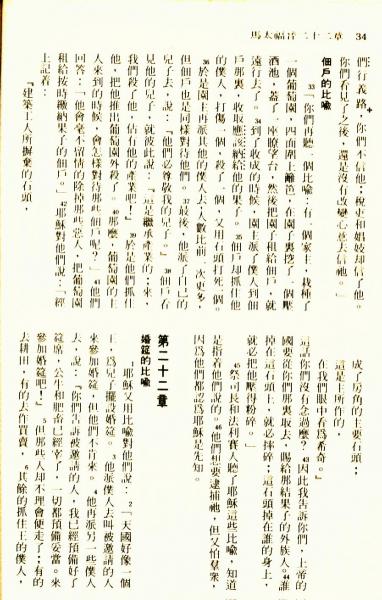 34 馬太福音二十二章
們行義路，你們卻不信他；稅吏和娼妓却信了他。
你們看見了之後，還是沒有改變心意去信祂。」
佃戶的比喻
33「你們再聽一個比喻：有一個家主，栽種了
一個葡萄園，四面圍上籬笆，在園子裏挖了一個壓
酒池，蓋了一座瞭望台，然後把園子租給佃戶，就
遠行去了。34到了收成的時候，園主派了僕人到佃
戶那裏，收取應該納給他的果子。35佃戶却抓住他
的僕人，打傷一個，殺了一個，又用石頭打死一個。
36於是園主再派其他的僕人去，人數比前一次更多，
但佃戶也是同樣對待他們。37最後，他派了自己的
兒子去，說：『他們必尊敬我的兒子。』38佃戶看
見他的兒子，就彼此說：『這是繼承產業的；來，
我們殺了他，佔有他的產業吧！』39於是他們抓住
他，把他推出葡萄園外殺了。40那麼，葡萄園的主
人來到的時候，會怎樣對待那些佃戶呢？」41他們
回答：「他會毫不留情的除掉那些惡人，把葡萄園
租給按時繳納果子的佃戶。」42耶穌對他們說：「經
上記着：
『建築工人所摒棄的石頭，
成了房角的主要石頭；
這是主所作的，
在我們眼中看爲希奇。』
這話你們沒有念過麼？43因此我告訴你們，上帝的
國要從你們那裏取去，賜給那結果子的外族人。44誰
掉在這石頭上，就必摔碎；這石頭掉在誰的身上，
就必把他壓得粉碎。」
45祭司長和法利賽人聽了耶穌這些比喻，知道
是指着他們說的。46他們想要逮捕祂，但又怕羣衆，
因爲他們都認爲耶穌是先知。
第二十二章
婚筵的比喻
1耶穌又用比喻對他們說：2「天國好像一個
王，爲兒子擺設婚筵。3他派僕人去叫被邀請的人
來參加婚筵，但他們不肯來。4他再派另一些僕人
去，說：『你們告訴被邀請的人，我已經預備好了
筵席，公牛和肥畜已經宰了，一切都預備妥當。來
參加婚筵吧！』5但那些人却不理會便走了；有的
去耕田，有的去作買賣，6其餘的抓住王的僕人，